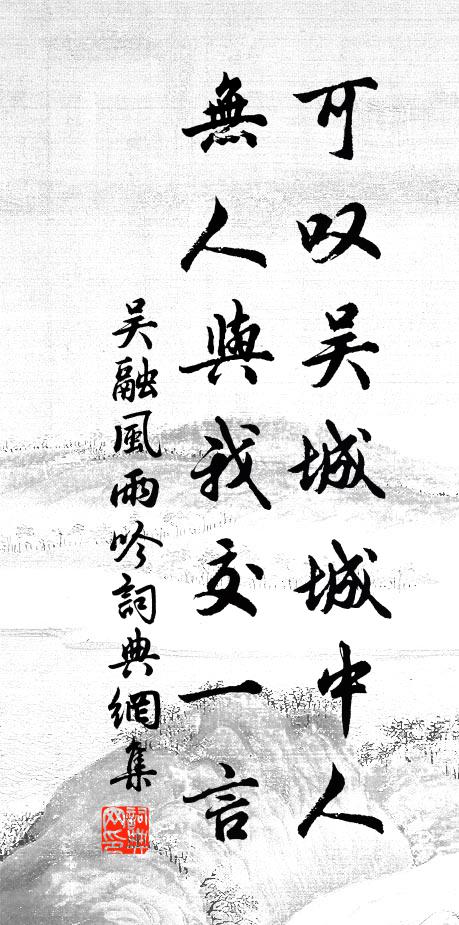 可叹吴城城中人
無人與我交一言
吴融風雨吟詞典網集